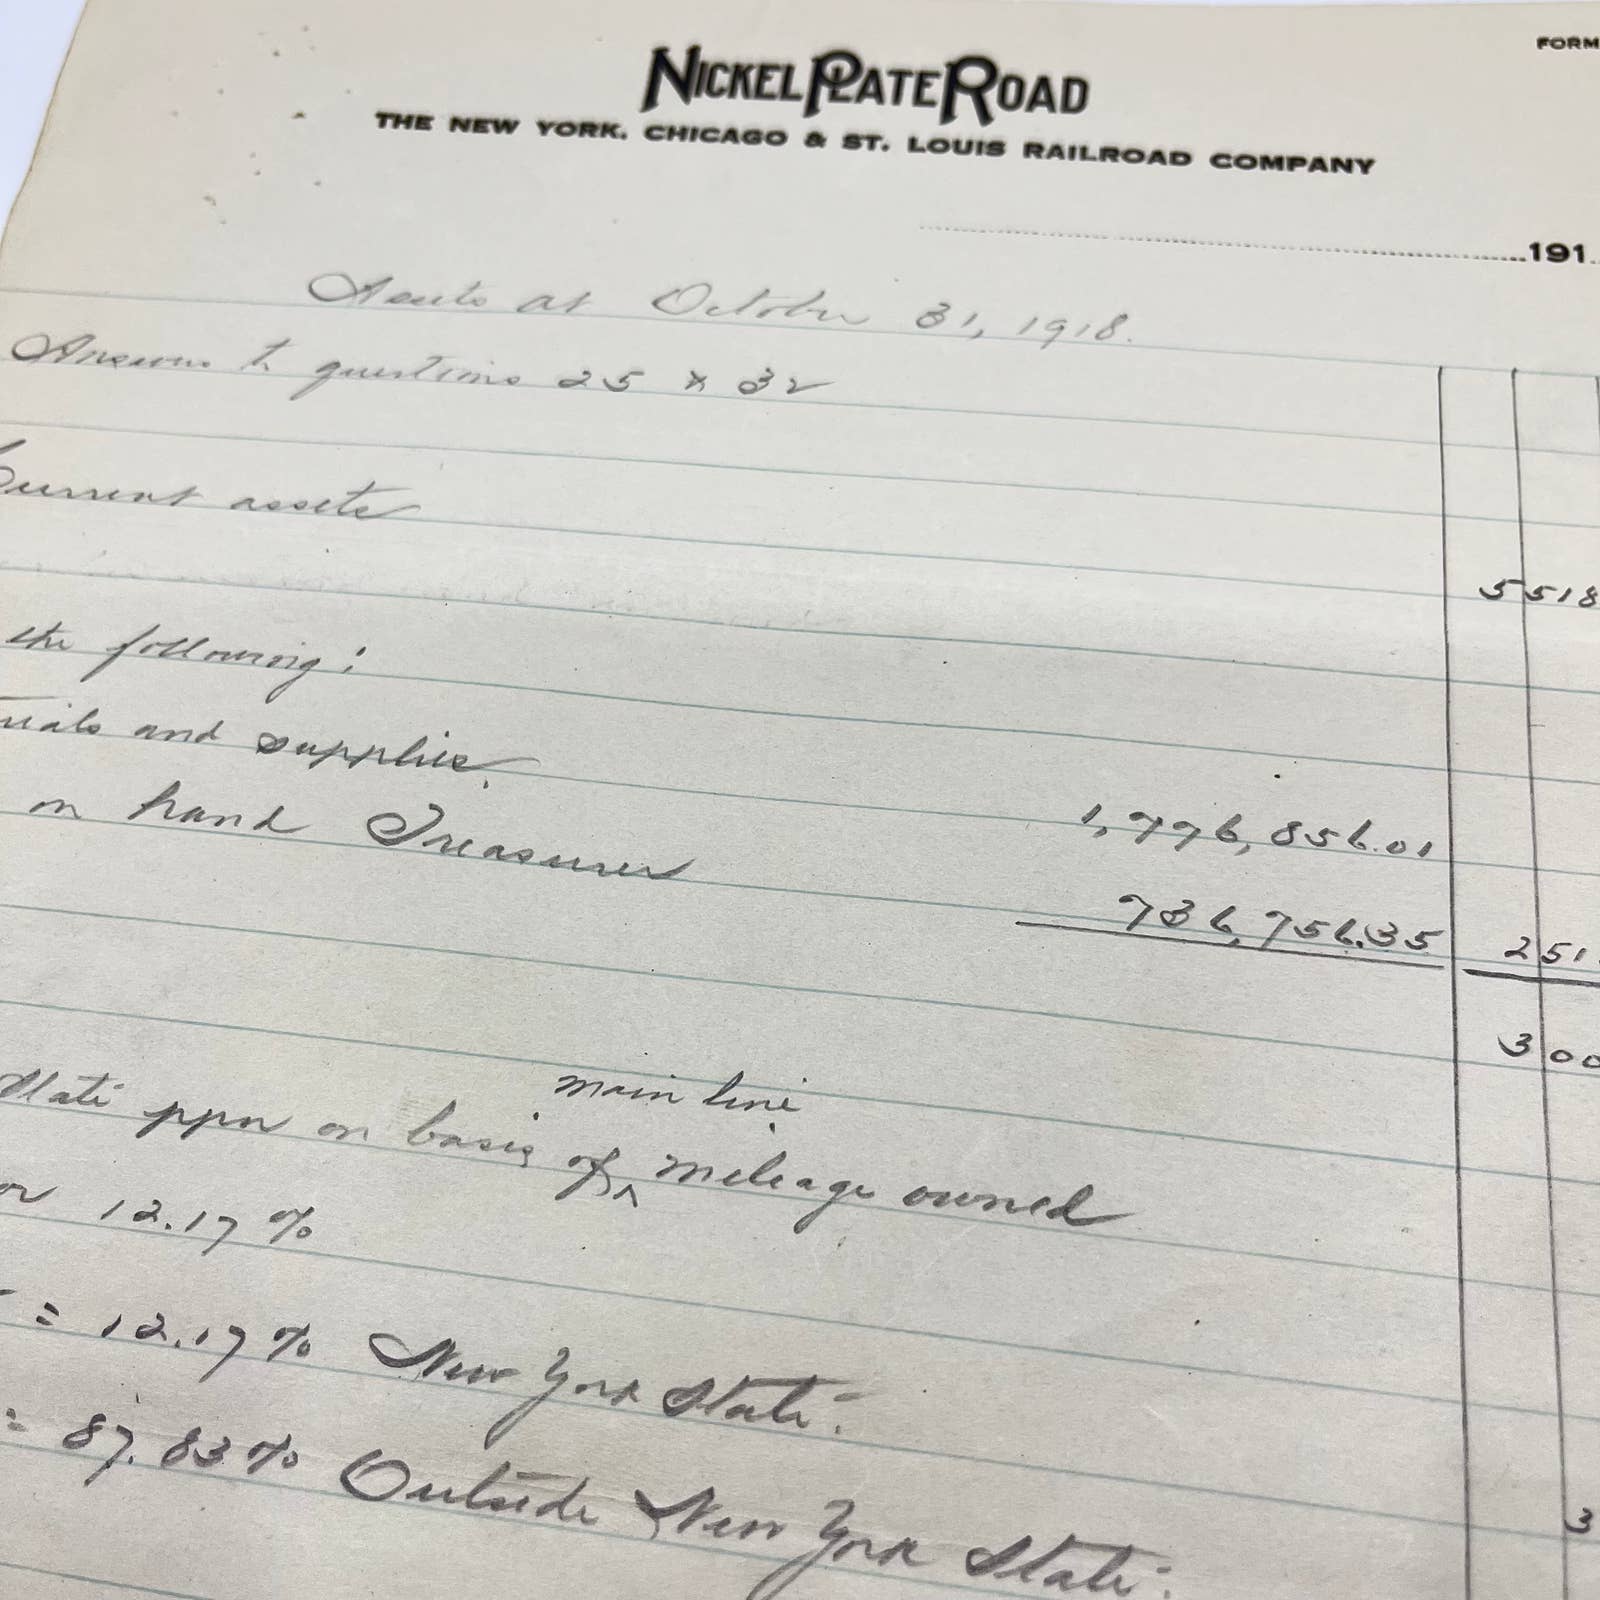 FORM
NICKEL PLATE ROAD
THE NEW YORK, CHICAGO & ST. LOUIS RAILROAD COMPANY
191
Assets at October 31, 1918.
Answers to questions 25 & 32
Current assets
5 518
the following:
rials and supplies.
1,776,856.01
on hand Treasurer
736,756.35
2 51
3 00
main line
State ppn on basis of ^ mileage owned
or 12.17%
= 12.17% New York State.
= 87.83% Outside New York State.
3